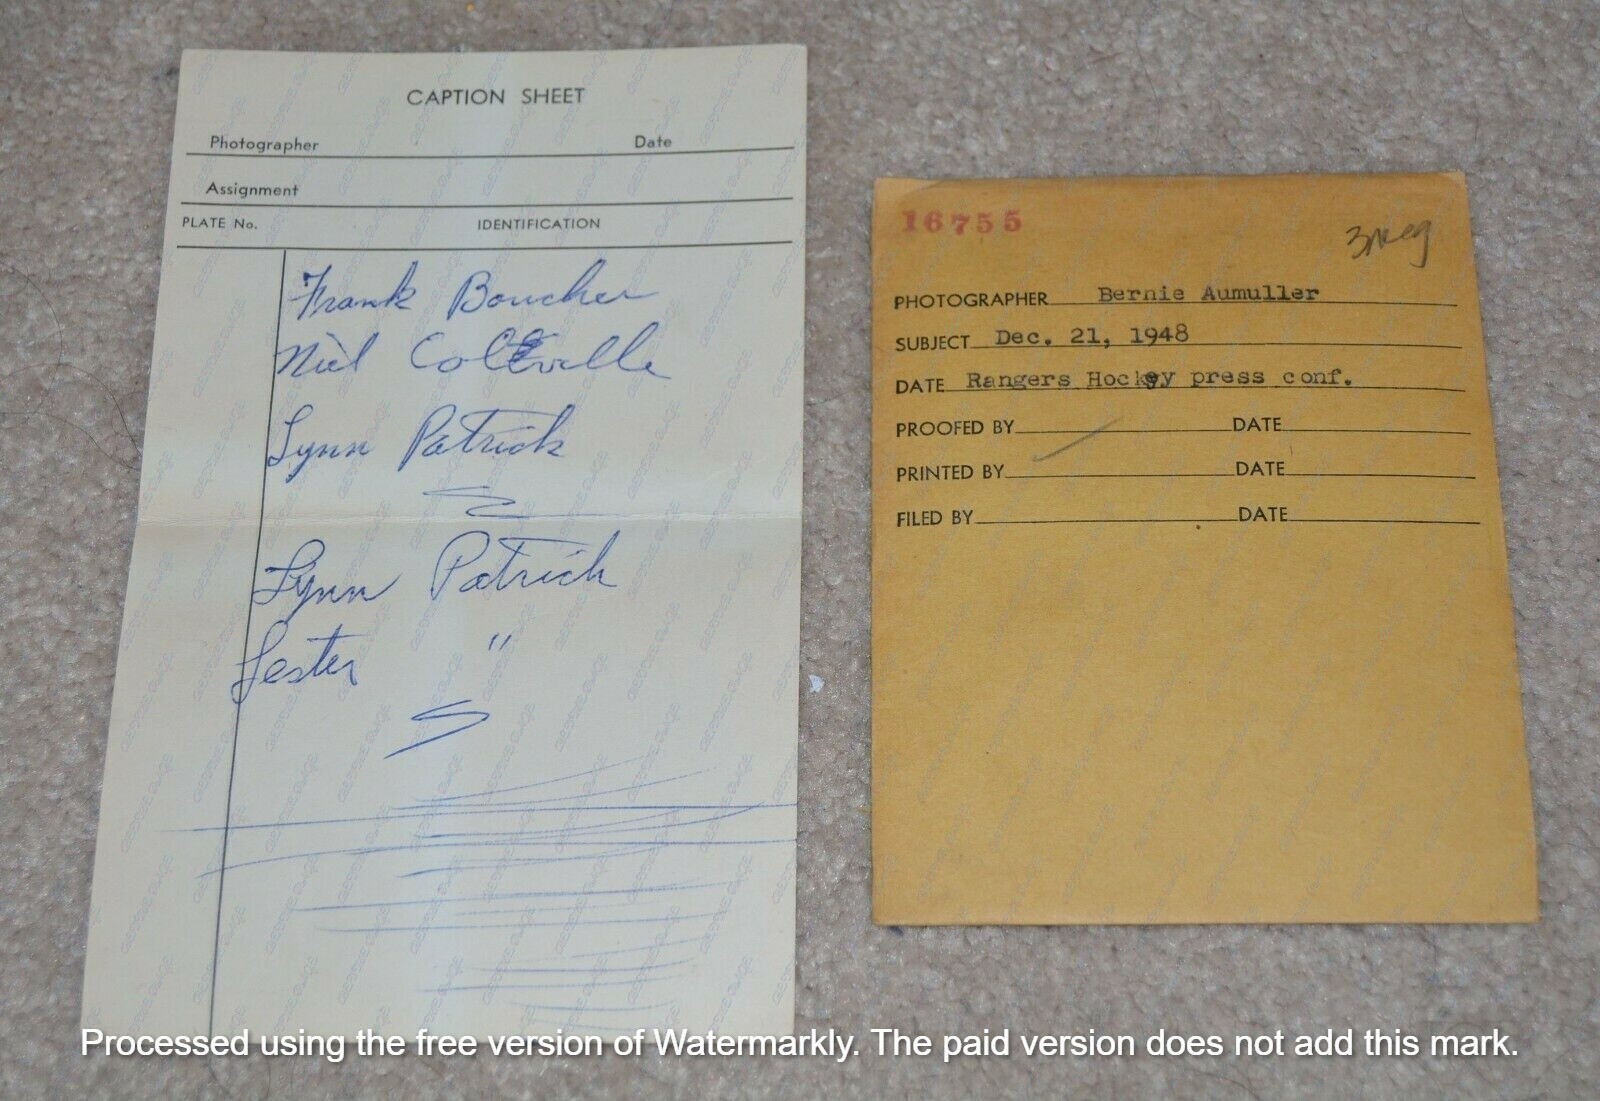 CAPTION SHEET
Photographer Date
Assignment
PLATE No. IDENTIFICATION
Frank Boucher
Niel Colville
Lynn Patrick
Lynn Patrick
Lester "
16755
3 neg
PHOTOGRAPHER Bernie Aumuller
SUBJECT Dec. 21, 1948
DATE Rangers Hockey press conf.
PROOFED BY DATE
PRINTED BY DATE
FILED BY DATE
Processed using the free version of Watermarkly. The paid version does not add this mark.